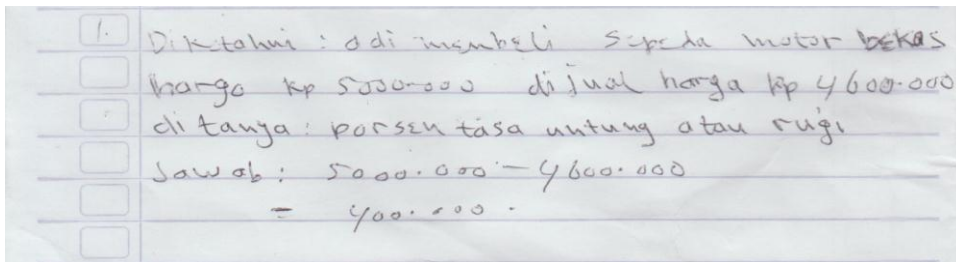 1. Diketahui : adi membeli sepeda motor bekas
harga Rp 5000.000 dijual harga Rp 4600.000
ditanya : porsentasa untung atau rugi
Jawab : 5000.000 - 4600.000
= 400.000.